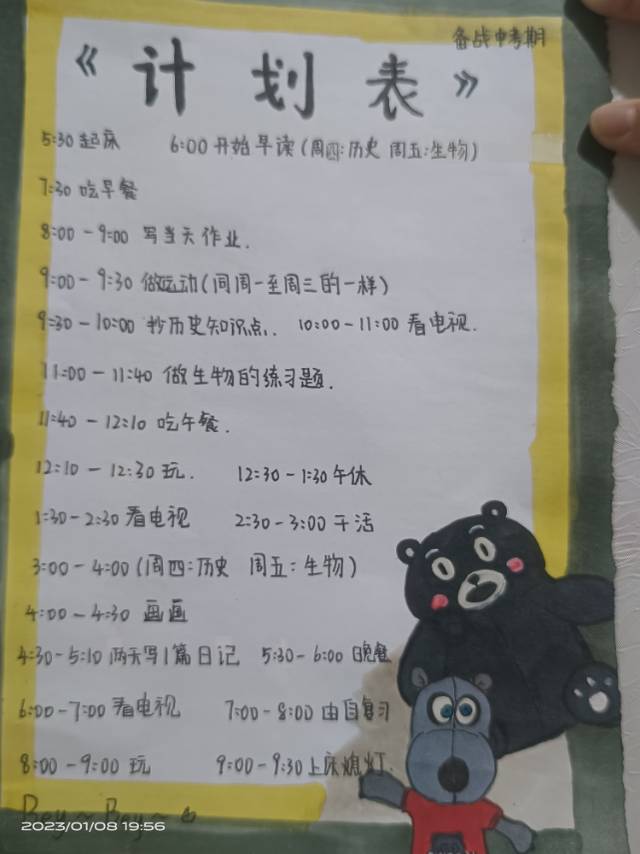 备战中考期
《计划表》
5:30 起床 6:00 开始早读(周四:历史 周五:生物)
7:30 吃早餐
8:00-9:00 写当天作业.
9:00-9:30 做运动(同周一至周三的一样)
9:30-10:00 抄历史知识点. 10:00-11:00 看电视.
11:00-11:40 做生物的练习题.
11:40-12:10 吃午餐.
12:10-12:30 玩. 12:30-1:30 午休
1:30-2:30 看电视 2:30-3:00 干活
3:00-4:00 (周四:历史 周五:生物)
4:00-4:30 画画
4:30-5:10 两天写1篇日记 5:30-6:00 晚餐
6:00-7:00 看电视 7:00-8:00 由自复习
8:00-9:00 玩 9:00-9:30 上床熄灯.
Bey~Bey~
2023/01/08 19:56